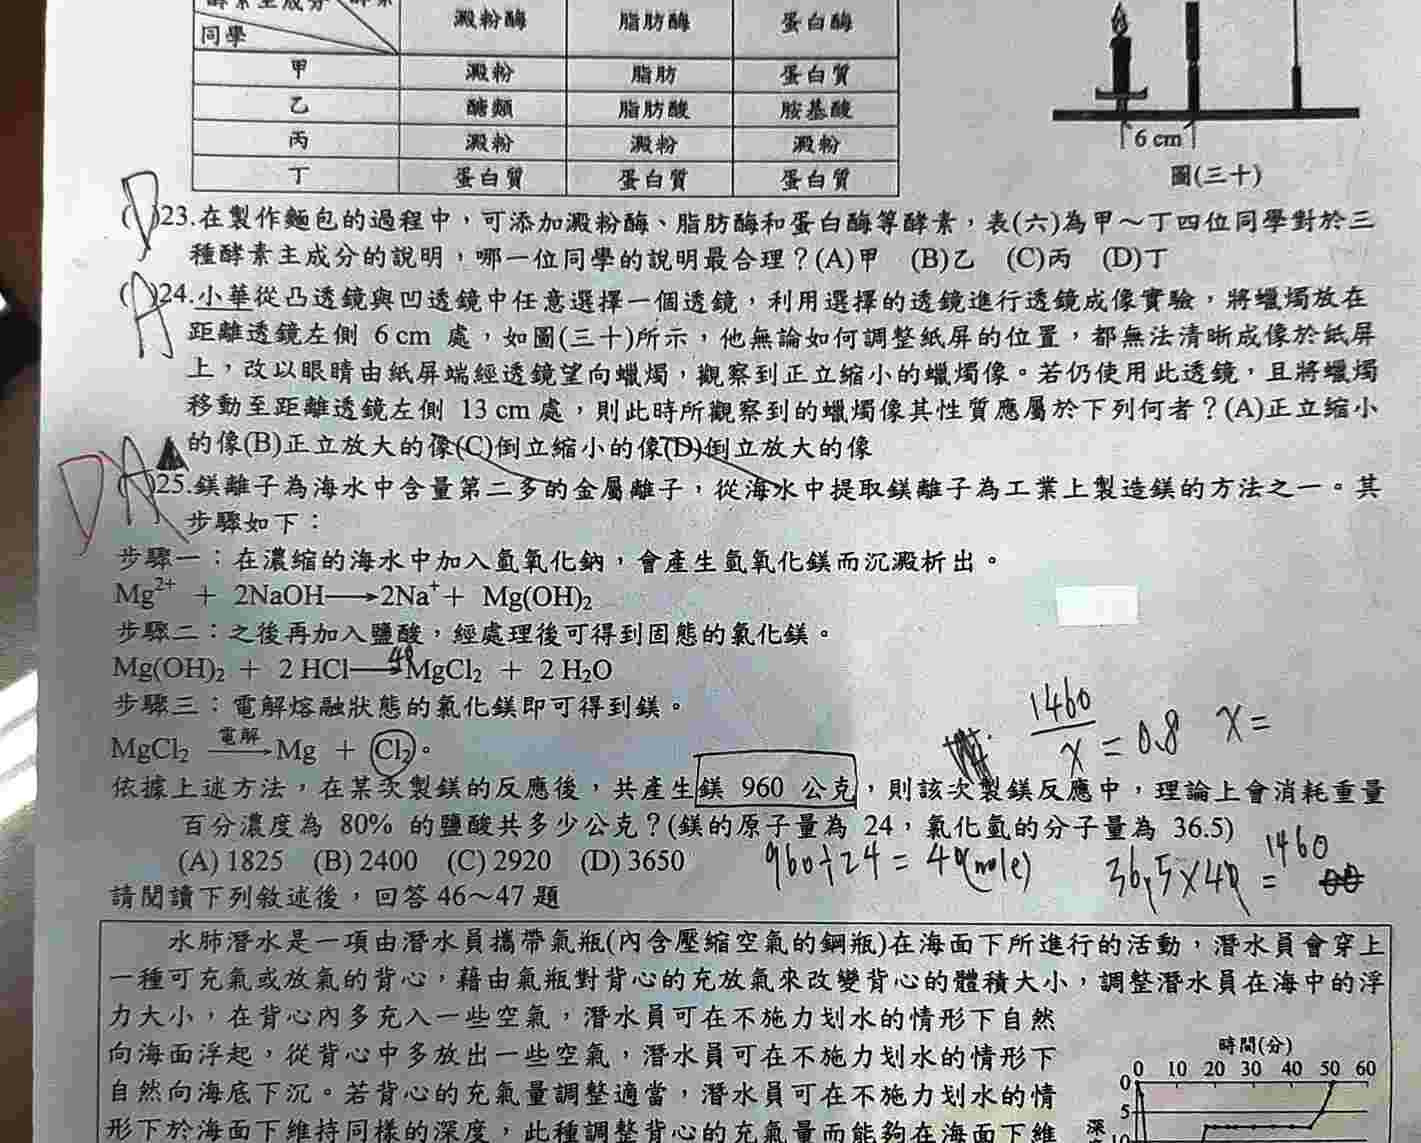 同學
澱粉酶 脂肪酶 蛋白酶
甲 澱粉 脂肪 蛋白質
乙 醣類 脂肪酸 胺基酸
丙 澱粉 澱粉 澱粉
丁 蛋白質 蛋白質 蛋白質
6 cm
圖(三十)
D
( )23.在製作麵包的過程中，可添加澱粉酶、脂肪酶和蛋白酶等酵素，表(六)為甲～丁四位同學對於三
種酵素主成分的說明，哪一位同學的說明最合理？(A)甲 (B)乙 (C)丙 (D)丁
A
( )24.小華從凸透鏡與凹透鏡中任意選擇一個透鏡，利用選擇的透鏡進行透鏡成像實驗，將蠟燭放在
距離透鏡左側 6 cm 處，如圖(三十)所示，他無論如何調整紙屏的位置，都無法清晰成像於紙屏
上，改以眼睛由紙屏端經透鏡望向蠟燭，觀察到正立縮小的蠟燭像。若仍使用此透鏡，且將蠟燭
移動至距離透鏡左側 13 cm 處，則此時所觀察到的蠟燭像其性質應屬於下列何者？(A)正立縮小
的像(B)正立放大的像(C)倒立縮小的像(D)倒立放大的像
D A
( )25.鎂離子為海水中含量第二多的金屬離子，從海水中提取鎂離子為工業上製造鎂的方法之一。其
步驟如下：
步驟一：在濃縮的海水中加入氫氧化鈉，會產生氫氧化鎂而沉澱析出。
Mg²⁺ + 2NaOH⟶2Na⁺+ Mg(OH)₂
步驟二：之後再加入鹽酸，經處理後可得到固態的氯化鎂。
Mg(OH)₂ + 2 HCl⟶MgCl₂ + 2 H₂O
步驟三：電解熔融狀態的氯化鎂即可得到鎂。
電解
MgCl₂ ⟶Mg + Cl₂。
1460/x = 0.8 x =
依據上述方法，在某次製鎂的反應後，共產生鎂 960 公克，則該次製鎂反應中，理論上會消耗重量
百分濃度為 80% 的鹽酸共多少公克？(鎂的原子量為 24，氯化氫的分子量為 36.5)
(A) 1825 (B) 2400 (C) 2920 (D) 3650
960÷24 = 40(mole) 36.5×40 = 1460
請閱讀下列敘述後，回答 46～47 題
水肺潛水是一項由潛水員攜帶氣瓶(內含壓縮空氣的鋼瓶)在海面下所進行的活動，潛水員會穿上
一種可充氣或放氣的背心，藉由氣瓶對背心的充放氣來改變背心的體積大小，調整潛水員在海中的浮
力大小，在背心內多充入一些空氣，潛水員可在不施力划水的情形下自然
向海面浮起，從背心中多放出一些空氣，潛水員可在不施力划水的情形下
自然向海底下沉。若背心的充氣量調整適當，潛水員可在不施力划水的情
形下於海面下維持同樣的深度，此種調整背心的充氣量而能夠在海面下維
時間(分)
0 10 20 30 40 50 60
0
5
深
10